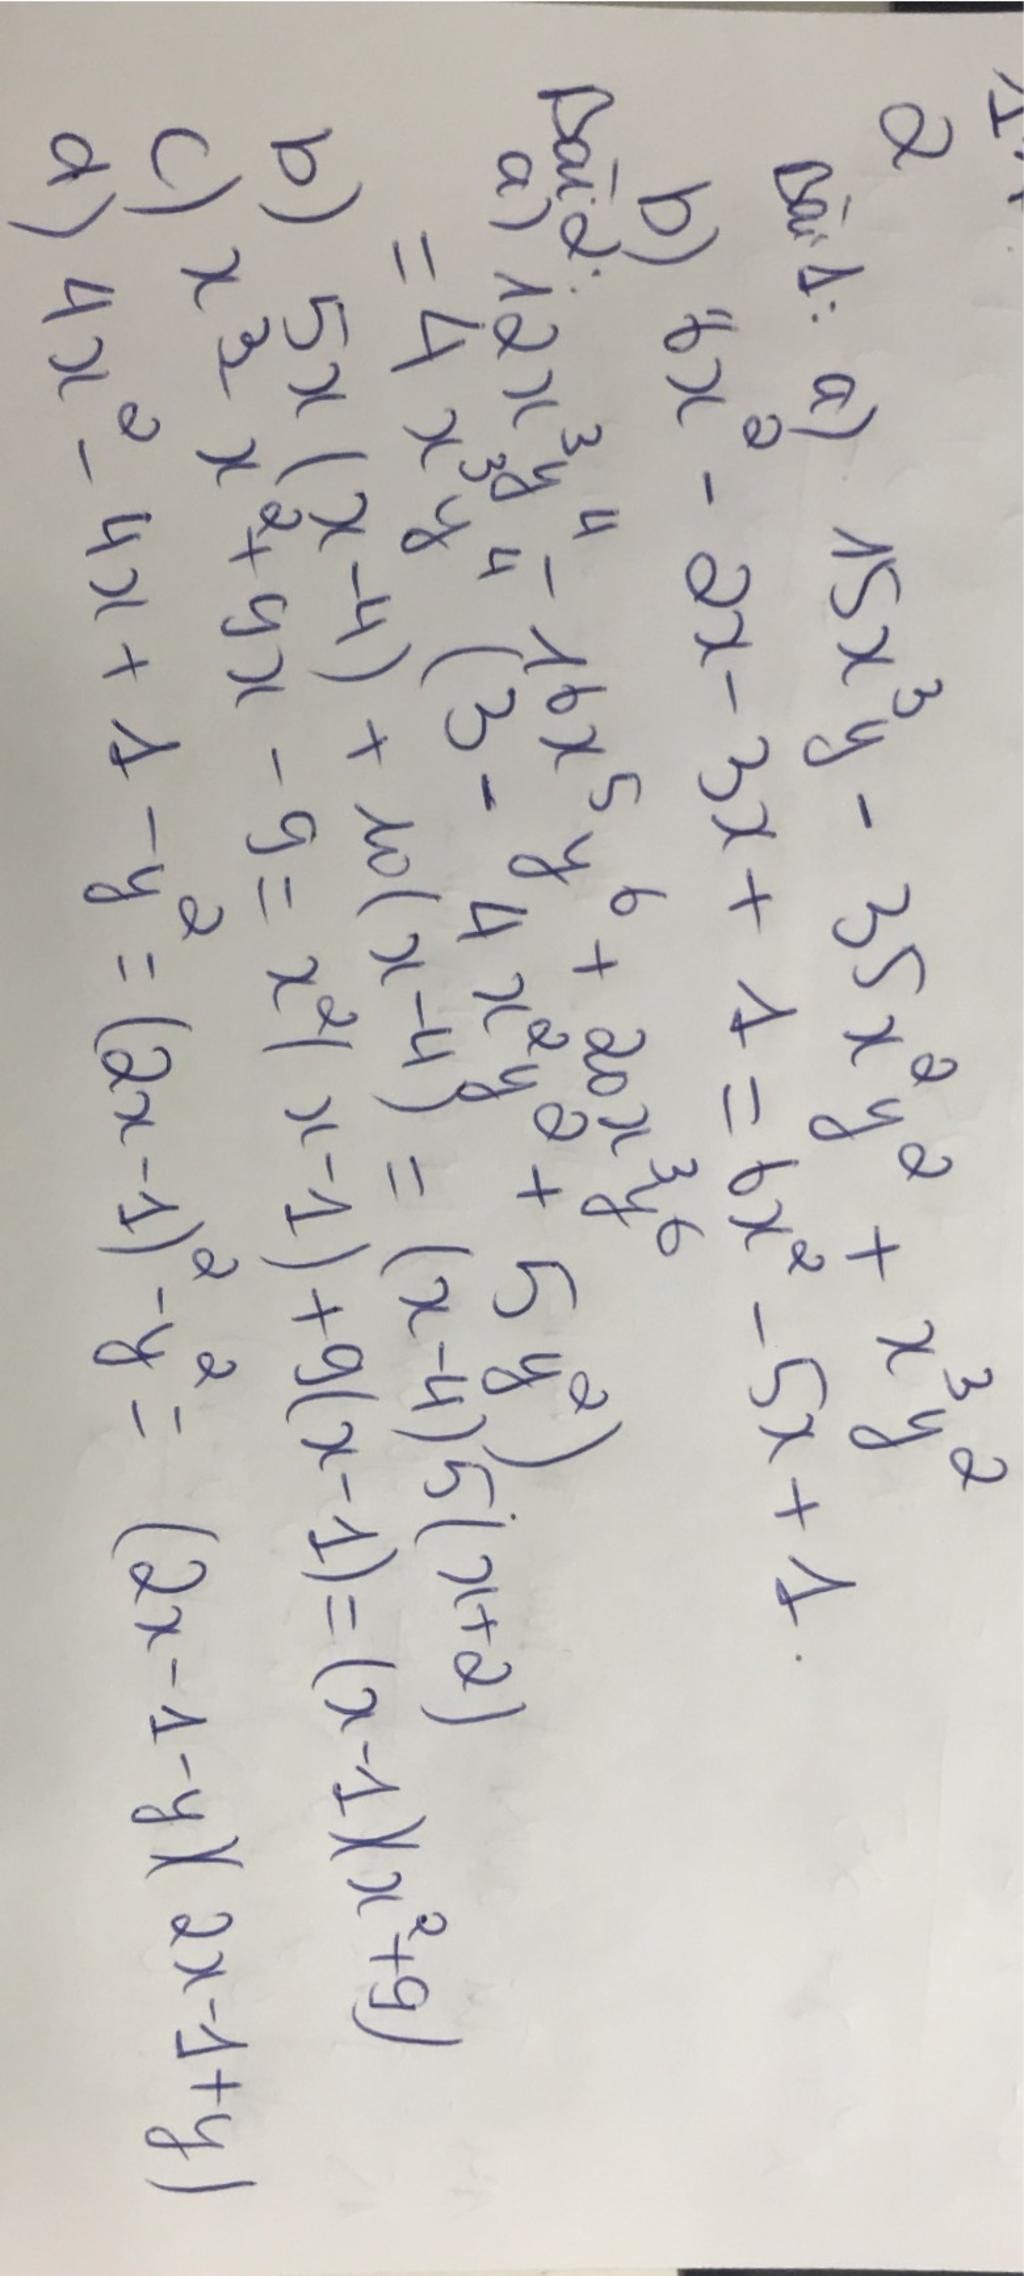 1.
2
Bài 1: a) 15x³y - 35x²y² + x³y²
b) 6x² - 2x - 3x + 1 = 6x² - 5x + 1.
Bài 2:
a) 12x³y⁴ - 16x⁵y⁶ + 20x³y⁶
= 4x³y⁴ (3 - 4x²y² + 5y²)
b) 5x (x-4) + 10(x-4) = (x-4)5(x+2)
c) x³ - x² + 9x - 9 = x²(x-1) + 9(x-1) = (x-1)(x²+9)
d) 4x² - 4x + 1 - y² = (2x-1)² - y² = (2x-1-y)(2x-1+y)